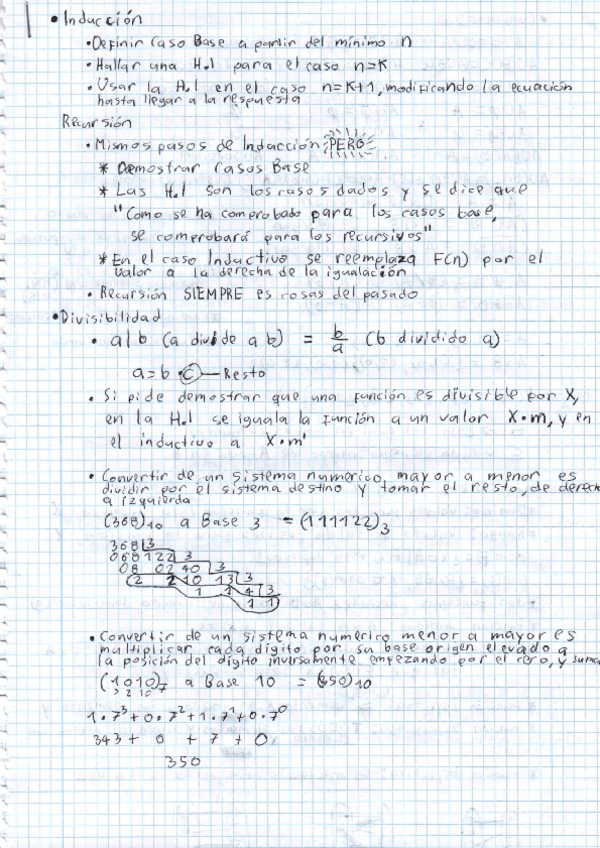 • Inducción
• Definir Caso Base a partir del mínimo n
• Hallar una H.I para el caso n=K
• Usar la H.I en el caso n=K+1, modificando la ecuación
hasta llegar a la respuesta
Recursión
• Mismos pasos de Inducción PERO
* Demostrar Casos Base
* Las H.I son los casos dados y se dice que
"Como se ha comprobado para los casos base,
se comprobará para los recursivos"
* En el caso Inductivo se reemplaza F(n) por el
valor a la derecha de la igualación
• Recursión SIEMPRE es cosas del pasado
• Divisibilidad
• a|b (a divide a b) = b/a (b dividido a)
a = b • C — Resto
• Si pide demostrar que una función es divisible por X,
en la H.I se iguala la función a un valor X•m, y en
el inductivo a X•m'
• Convertir de un sistema numérico mayor a menor es
dividir por el sistema destino y tomar el resto, de derecha
a izquierda
(368)₁₀ a Base 3 = (111122)₃
368 3
068 122 3
08 02 40 3
(2 2 10 13 3
1 1 4 3
1 1
• Convertir de un sistema numérico menor a mayor es
multiplicar cada dígito por su base origen elevado a
la posición del dígito inversamente empezando por el cero, y sumar
(1010)₇ a Base 10 = (350)₁₀
3 2 1 0
1•7³+0•7²+1•7¹+0•7⁰
343 + 0 + 7 + 0
350